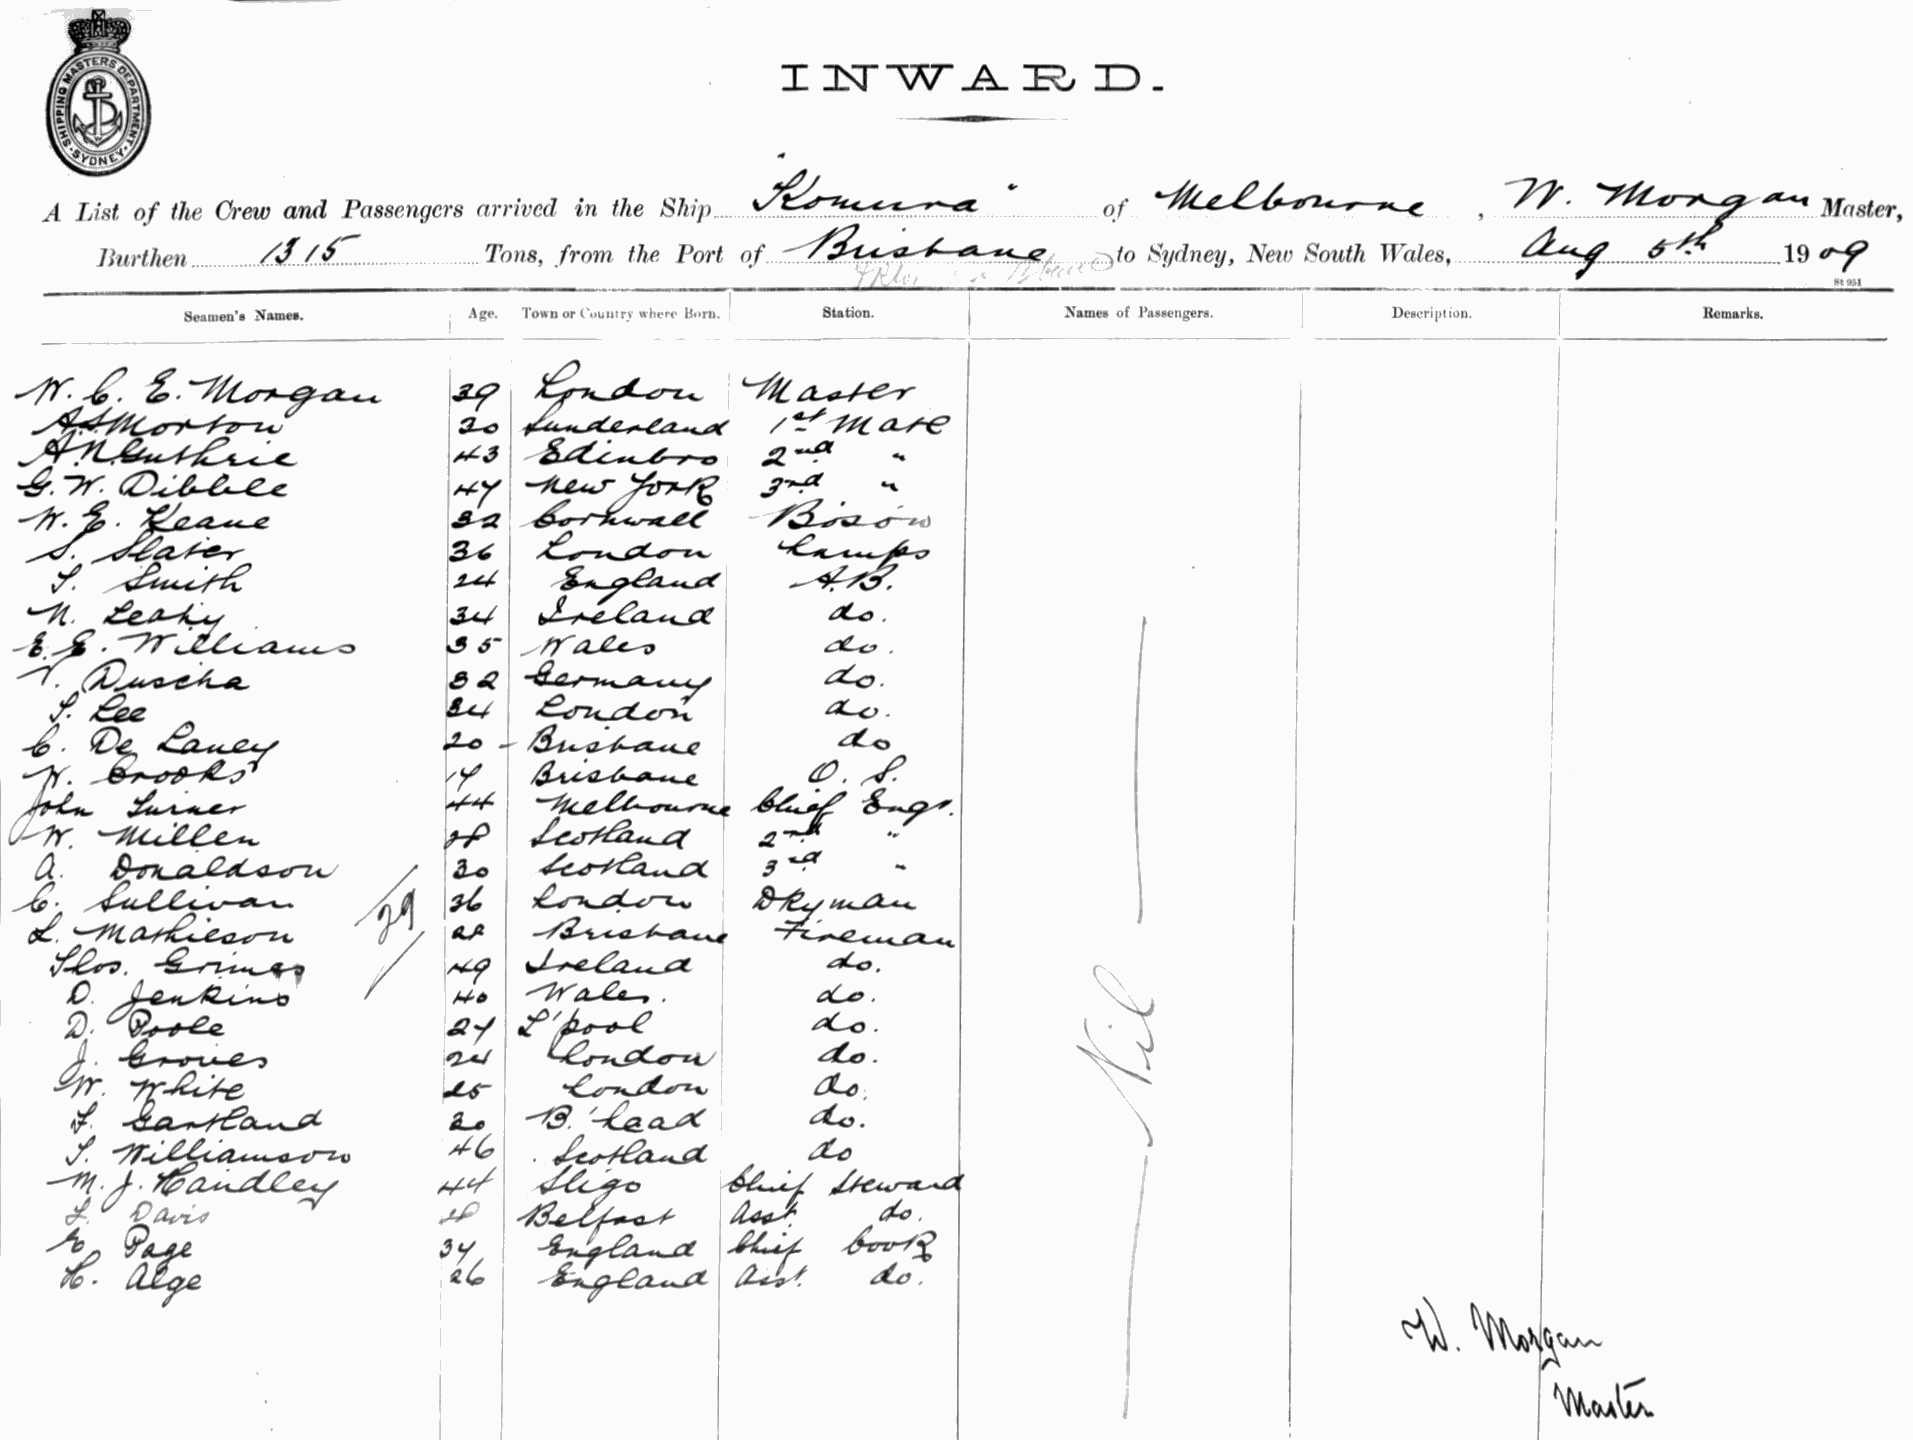 SHIPPING MASTERS DEPARTMENT. SYDNEY.
INWARD.
A List of the Crew and Passengers arrived in the Ship "Komura" of Melbourne, W. Morgan Master,
Burthen 1315 Tons, from the Port of Brisbane to Sydney, New South Wales, Aug 5th 1909
St 951
Seamen's Names. Age. Town or Country where Born. Station. Names of Passengers. Description. Remarks.
W. C. E. Morgan 39 London Master
A S Morton 30 Sunderland 1st Mate
A. N. Guthrie 43 Edinbro 2nd "
G. W. Dibble 47 New York 3rd "
W. E. Keane 32 Cornwall Bosow
S. Slater 36 London Lamps
S. Smith 24 England A.B.
N. Leahy 34 Ireland do.
E. E. Williams 35 Wales do.
Duscha 32 Germany do.
S. Lee 34 London do.
C. De Laney 20 - Brisbane do
W. Crooks 17 Brisbane O. S.
John Turner 44 Melbourne Chief Engr.
W. Millen 28 Scotland 2nd "
A. Donaldson 30 Scotland 3rd "
C. Sullivan 36 London Dkyman
29
L. Mathieson 22 Brisbane Fireman
Thos. Grimes 49 Ireland do.
D. Jenkins 40 Wales. do.
D. Poole 27 L'pool do.
J. Groves 24 London do.
W. White 25 London do.
F. Gartland 30 B.'head do.
T. Williamson 46 Scotland do
M. J. Handley 44 Sligo Chief Steward
F. Davis 28 Belfast Asst. do.
G. Page 37 England Chief Cook
H. Alge 26 England Asst. do.
Nil
W. Morgan
Master